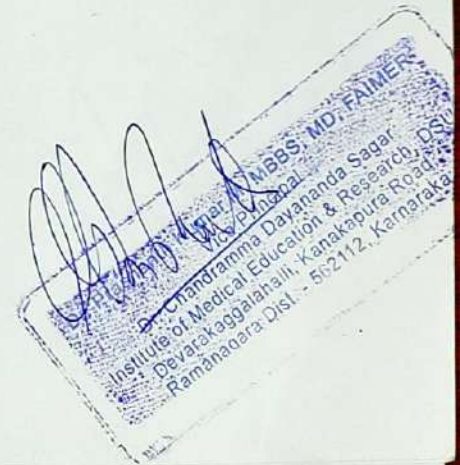 Kumar N MBBS, MD, FAIMER
Vice Principal
Dr. Chandramma Dayananda Sagar
Institute of Medical Education & Research, DSU
Devarakaggalahalli, Kanakapura Road,
Ramanagara Dist. - 562112, Karnaraka